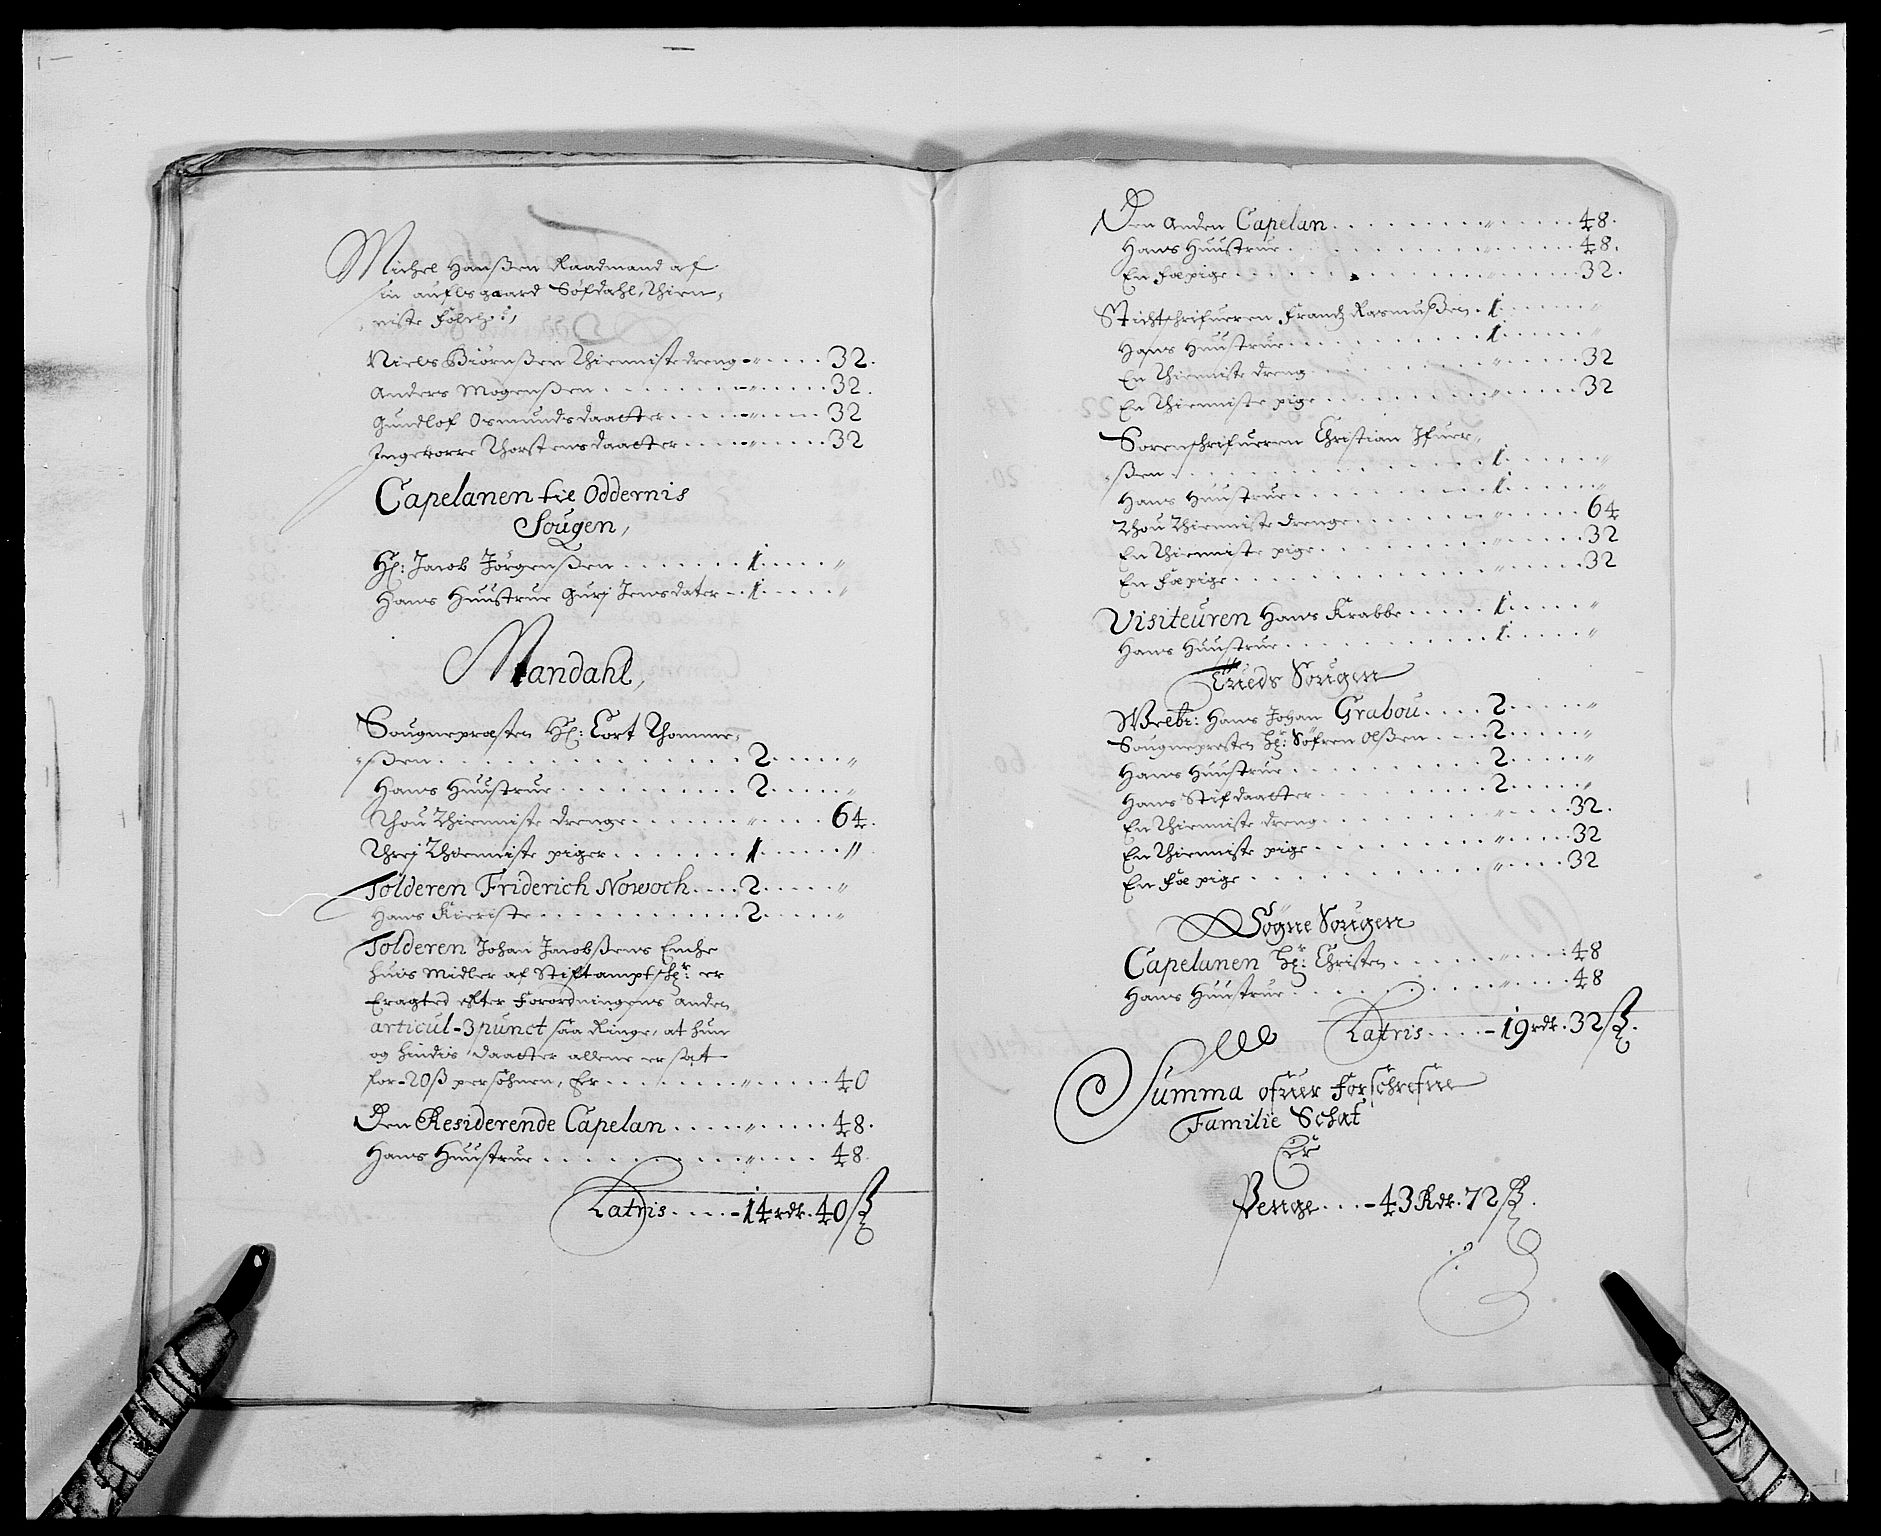 Michel Hanßen Raadmand af
sin aufls gaard Søfdahl, Thien-
niste folch:
Niels Biørnßen Thienniste dreng - " .... 32.
Anders Mogenßen ....... - " .... 32.
Gundlof Osmundsdaatter .... - " .... 32
Ingeborre Thorstensdaatter .... - " .... 32
Capelanen til Oddernis
Sougen,
Hr: Jacob Jørgenßen ....... 1 .... "
Hans Huustrue Guri Jensdater - . 1 .... "
Mandahl,
Sougnepræsten Hr: Cort Thomme-
-ßen ............... 2 .... "
Hans Huustrue .......... 2 .... "
Thou Thienniste drenge ...... " .... 64.
Threj Thienniste piger ....... 1 ..... "
Tolderen Friderich Nowoch .... 2 .... "
Hans Kieriste .......... 2 .... "
Tolderen Johan Jacobßens Enche
huis Midler af Stiftamptschr: er
Eragted efter Forordningens anden
articul - 3 punct saa Ringe, at hun
og hindis daatter allene er sat
for - 20 ß persohnen, Er ....... " .... 40
Den Residerende Capelan ..... " .... 48.
Hans Huustrue .......... " .... 48
Latris .... - 14 rdr. 40 ß
Den anden Capelan ........ " .... 48.
Hans Huustrue .......... " .... 48.
En fæpige ............ " .... 32.
Stichtschrifueren Frandz Rasmußen . 1 .... "
Hans Huustrue .......... 1 .... "
En Thienniste dreng ........ " .... 32
En Thienniste pige ........ " .... 32
Sorenschrifueren Christian Ifuer-
-ßen .............. 1 .... "
Hans Huustrue .......... 1 .... "
Thou Thienniste drenge ...... " .... 64
En Thienniste pige ........ " .... 32
En fæpige ............ " .... 32
Visiteuren Hans Krabbe ..... 1 .... "
Hans Huustrue .......... 1 .... "
Sougen
Hans Johan Grabou .... 2 .... "
Sougnepresten Hr: Søfren Olßen ... 2 .... "
Hans Huustrue .......... 2 .... "
Hans Stifdaatter ......... 2 .... "
En Thienniste dreng ........ " .... 32.
En Thienniste pige ........ " .... 32
En fæ pige ............ " .... 32
Søgne Sougen
Capelanen Hr: Christen ...... " .... 48
Hans Huustrue .......... " .... 48
Latris .... - 19 rdr. 32 ß.
Summa ofuer Forschrefne
Familie Schat
Er
Penge ... - 43 Rdr. 72 ß.